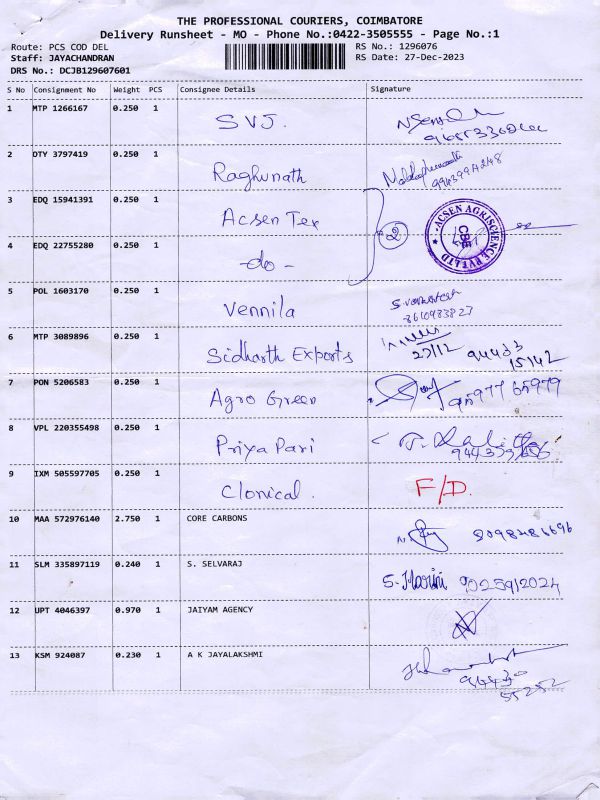 THE PROFESSIONAL COURIERS, COIMBATORE
Delivery Runsheet - MO - Phone No.:0422-3505555 - Page No.:1
Route: PCS COD DEL
RS No.: 1296076
Staff: JAYACHANDRAN
RS Date: 27-Dec-2023
DRS No.: DCJB129607601
S No Consignment No Weight PCS Consignee Details Signature
1 MTP 1266167 0.250 1 SVJ.
2 DTY 3797419 0.250 1 Raghunath
3 EDQ 15941391 0.250 1 Acsen Tex
2
ACSEN AGRISCIENCE PVT LTD
CBE
4 EDQ 22755280 0.250 1 -do-
5 POL 1603170 0.250 1 Vennila
6 MTP 3089896 0.250 1 Sidharth Exports 27/12 94433
15142
7 PON 5206583 0.250 1 Agro Green 95977 65979
8 VPL 220355498 0.250 1 Priya Pari
9 IXM 505597705 0.250 1 Clonical. F/D.
10 MAA 572976140 2.750 1 CORE CARBONS
11 SLM 335897119 0.240 1 S. SELVARAJ S. Harini 9025912024
12 UPT 4046397 0.970 1 JAIYAM AGENCY
13 KSM 924087 0.230 1 A K JAYALAKSHMI
94430
55252